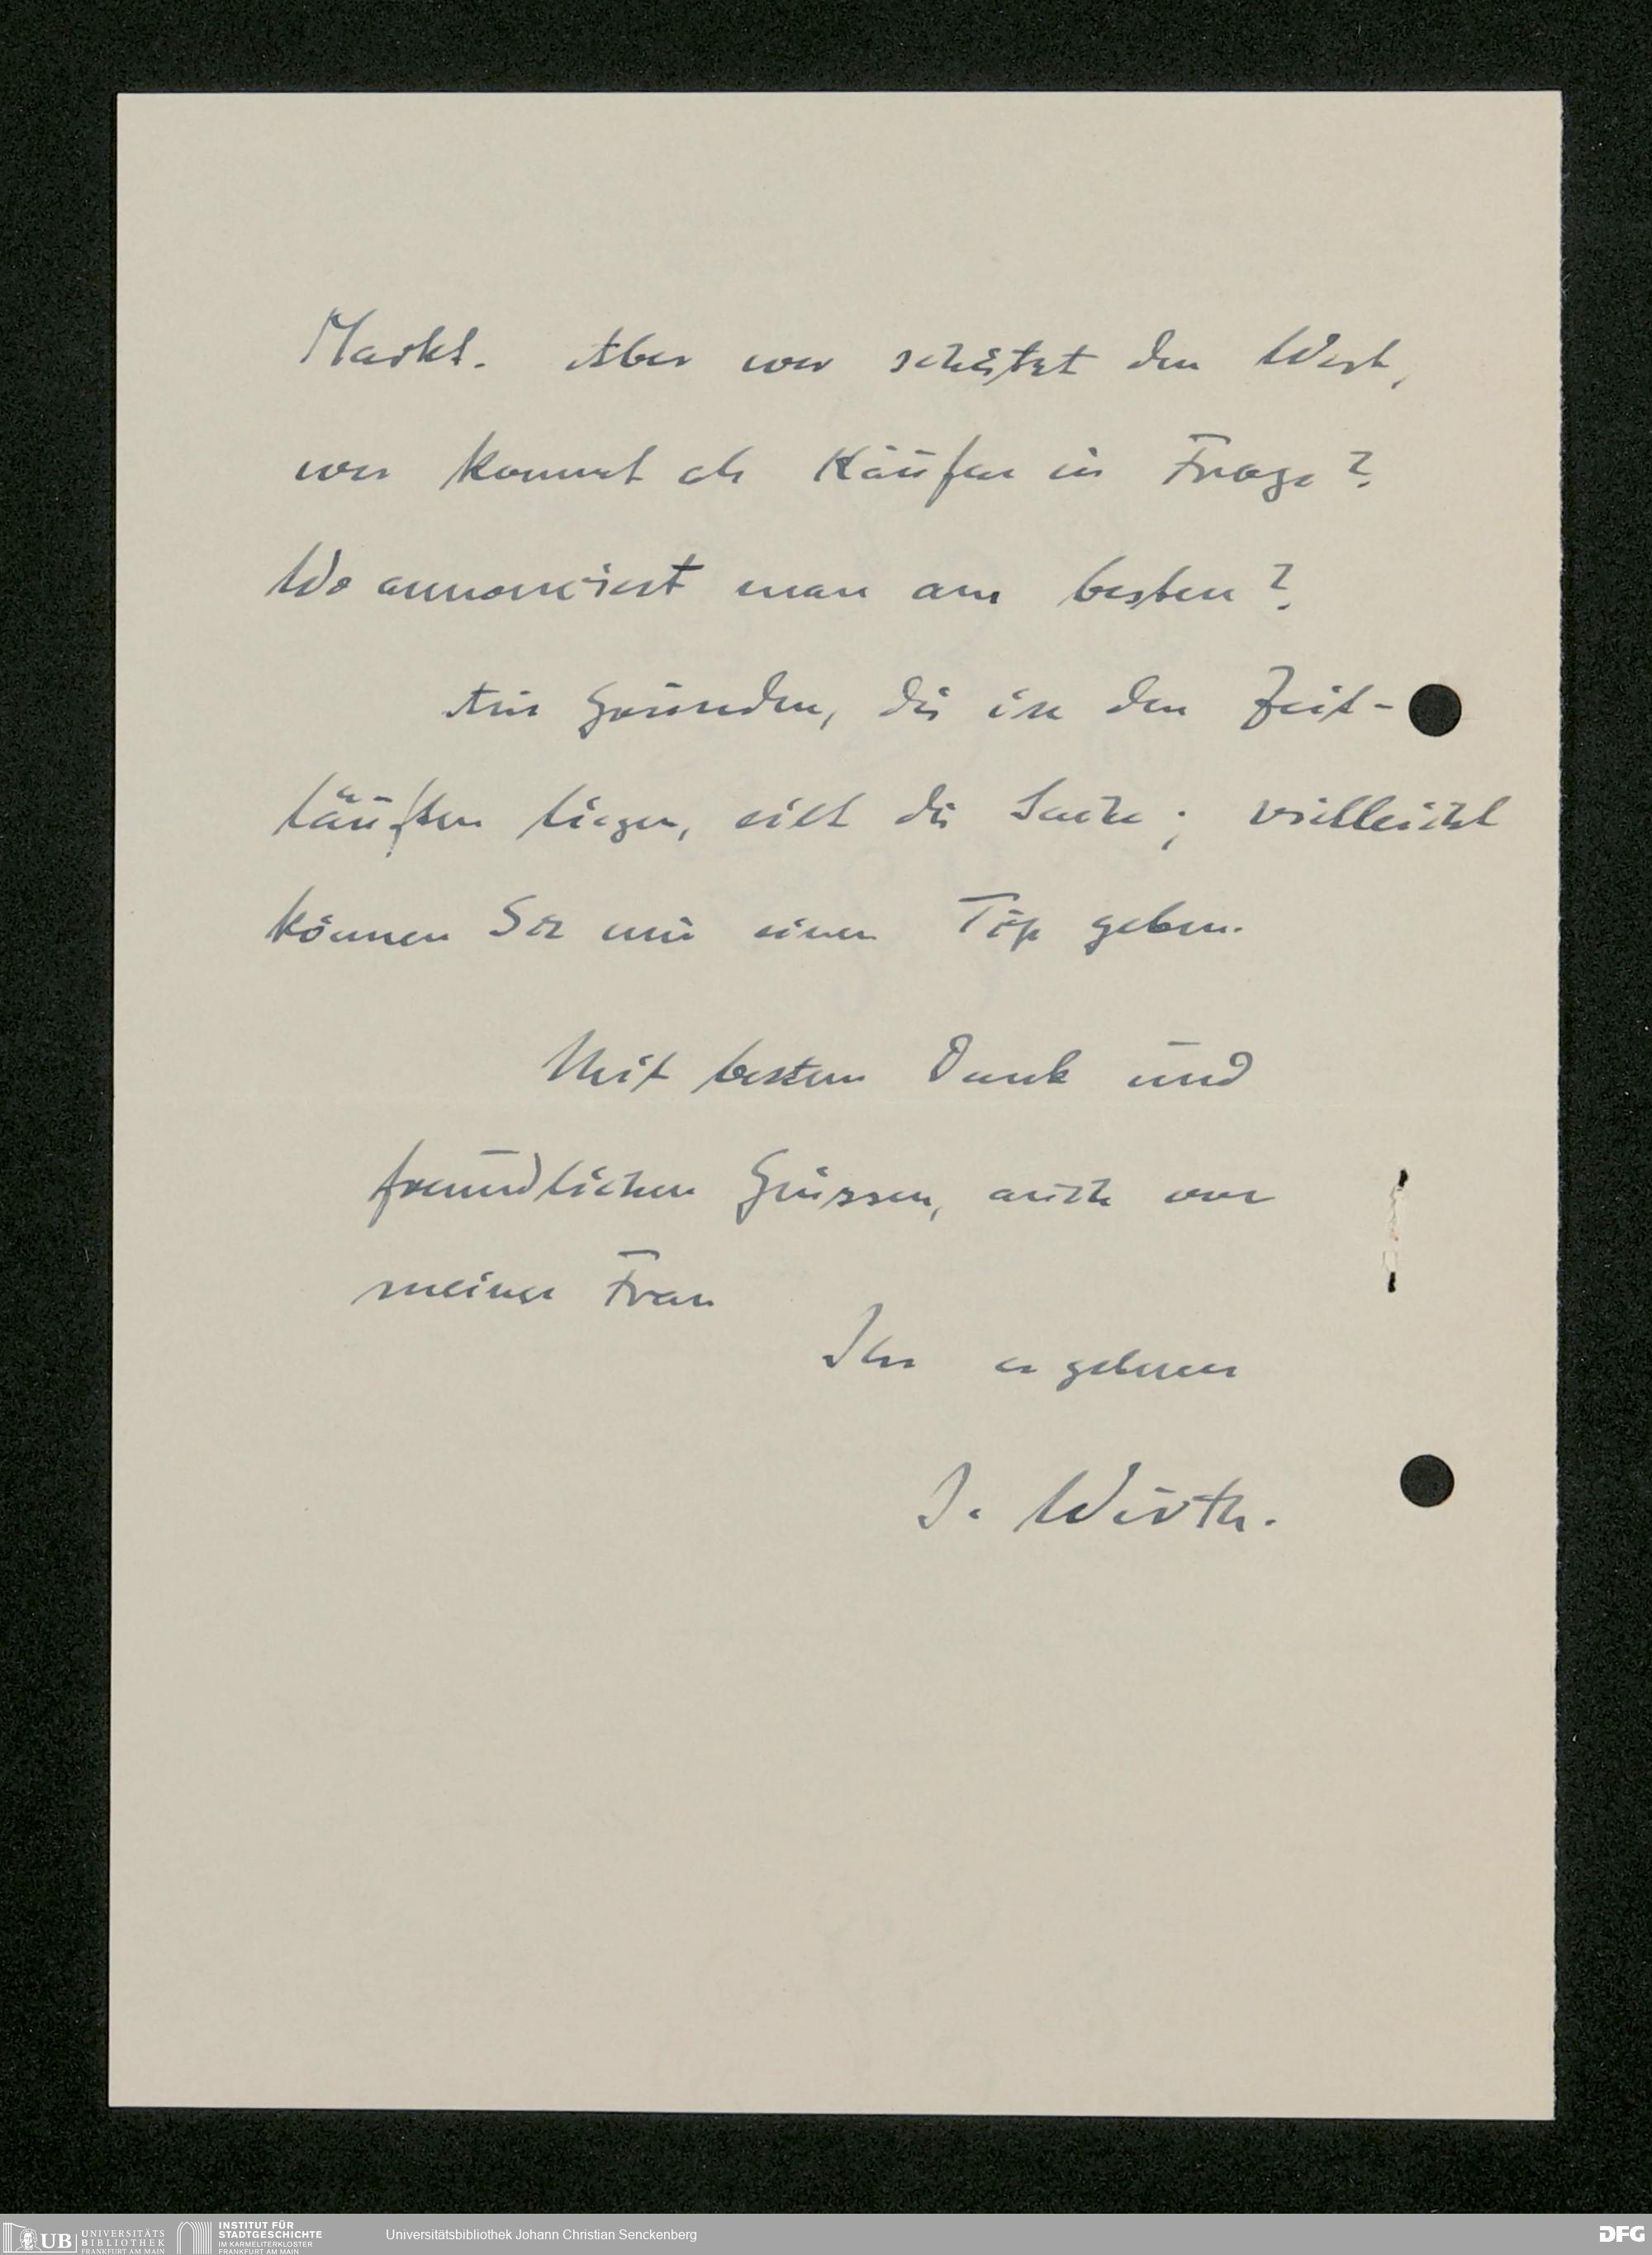 Markt. Aber wer schätzt den Wert,
wer kommt als Käufer in Frage?
Wo annonciert man am besten?
Aus Gründen, die in den Zeit-
läuften liegen, eilt die Sache; vielleicht
können Sie mir einen Tip geben.
Mit bestem Dank und
freundlichen Grüssen, auch von
meiner Frau
Ihr ergebener
J. Wirth.
UB UNIVERSITÄTS
BIBLIOTHEK
FRANKFURT AM MAIN
INSTITUT FÜR
STADTGESCHICHTE
IM KARMELITERKLOSTER
FRANKFURT AM MAIN
Universitätsbibliothek Johann Christian Senckenberg
DFG